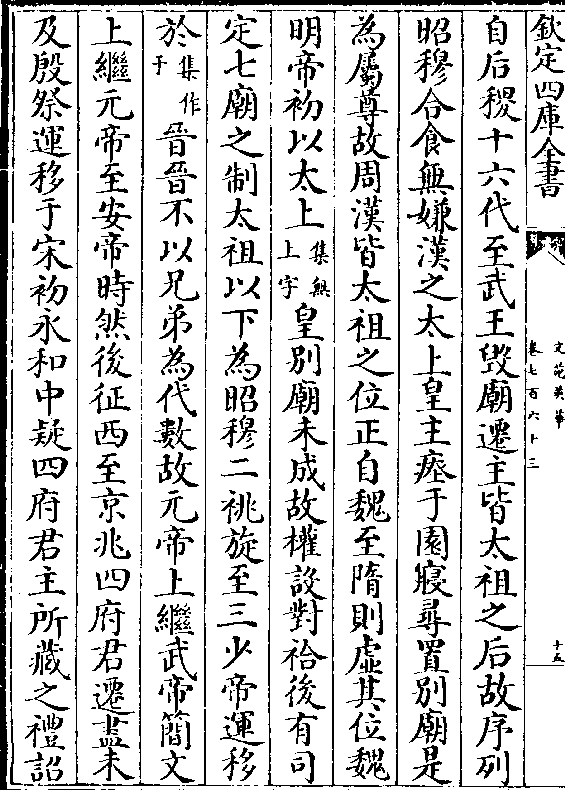 欽定四庫全書
文苑英華
卷七百六十三
十五
自后稷十六代至武王毀廟遷主皆太祖之后故序列
昭穆合食無嫌漢之太上皇主瘞于園寢尋置別廟是
為屬尊故周漢皆太祖之位正自魏至隋則虛其位魏
明帝初以太上集無上字皇別廟未成故權設對祫後有司
定七廟之制太祖以下為昭穆二祧旋至三少帝運移
於集作于晉晉不以兄弟為代數故元帝上繼武帝簡文
上繼元帝至安帝時然後征西至京兆四府君遷盡未
及殷祭運移于宋初永和中疑四府君主所藏之禮詔